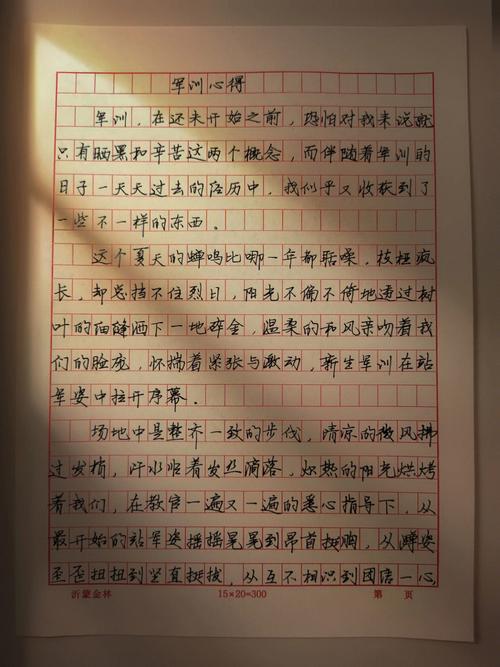 军训心得
军训，在还未开始之前，恐怕对我来说就
只有晒黑和辛苦这两个概念，而伴随着军训的
日子一天天过去的经历中，我似乎又收获到了
一些不一样的东西。
这个夏天的蝉鸣比哪一年都聒噪，枝桠疯
长，却总挡不住烈日，阳光不偏不倚地透过树
叶的缝隙洒下一地碎金，温柔的和风亲吻着我
们的脸庞，怀揣着紧张与激动，新生军训在站
军姿中拉开序幕。
场地中是整齐一致的步伐，清凉的微风拂
过发梢，汗水沿着发丝滴落，炽热的阳光烘烤
着我们，在教官一遍又一遍的悉心指导下，从
最开始的站军姿摇摇尾尾到昂首挺胸，从蹲姿
歪歪扭扭到坚直挺拔，从互不相识到团结一心，
沂蒙金林 15×20=300 第 页